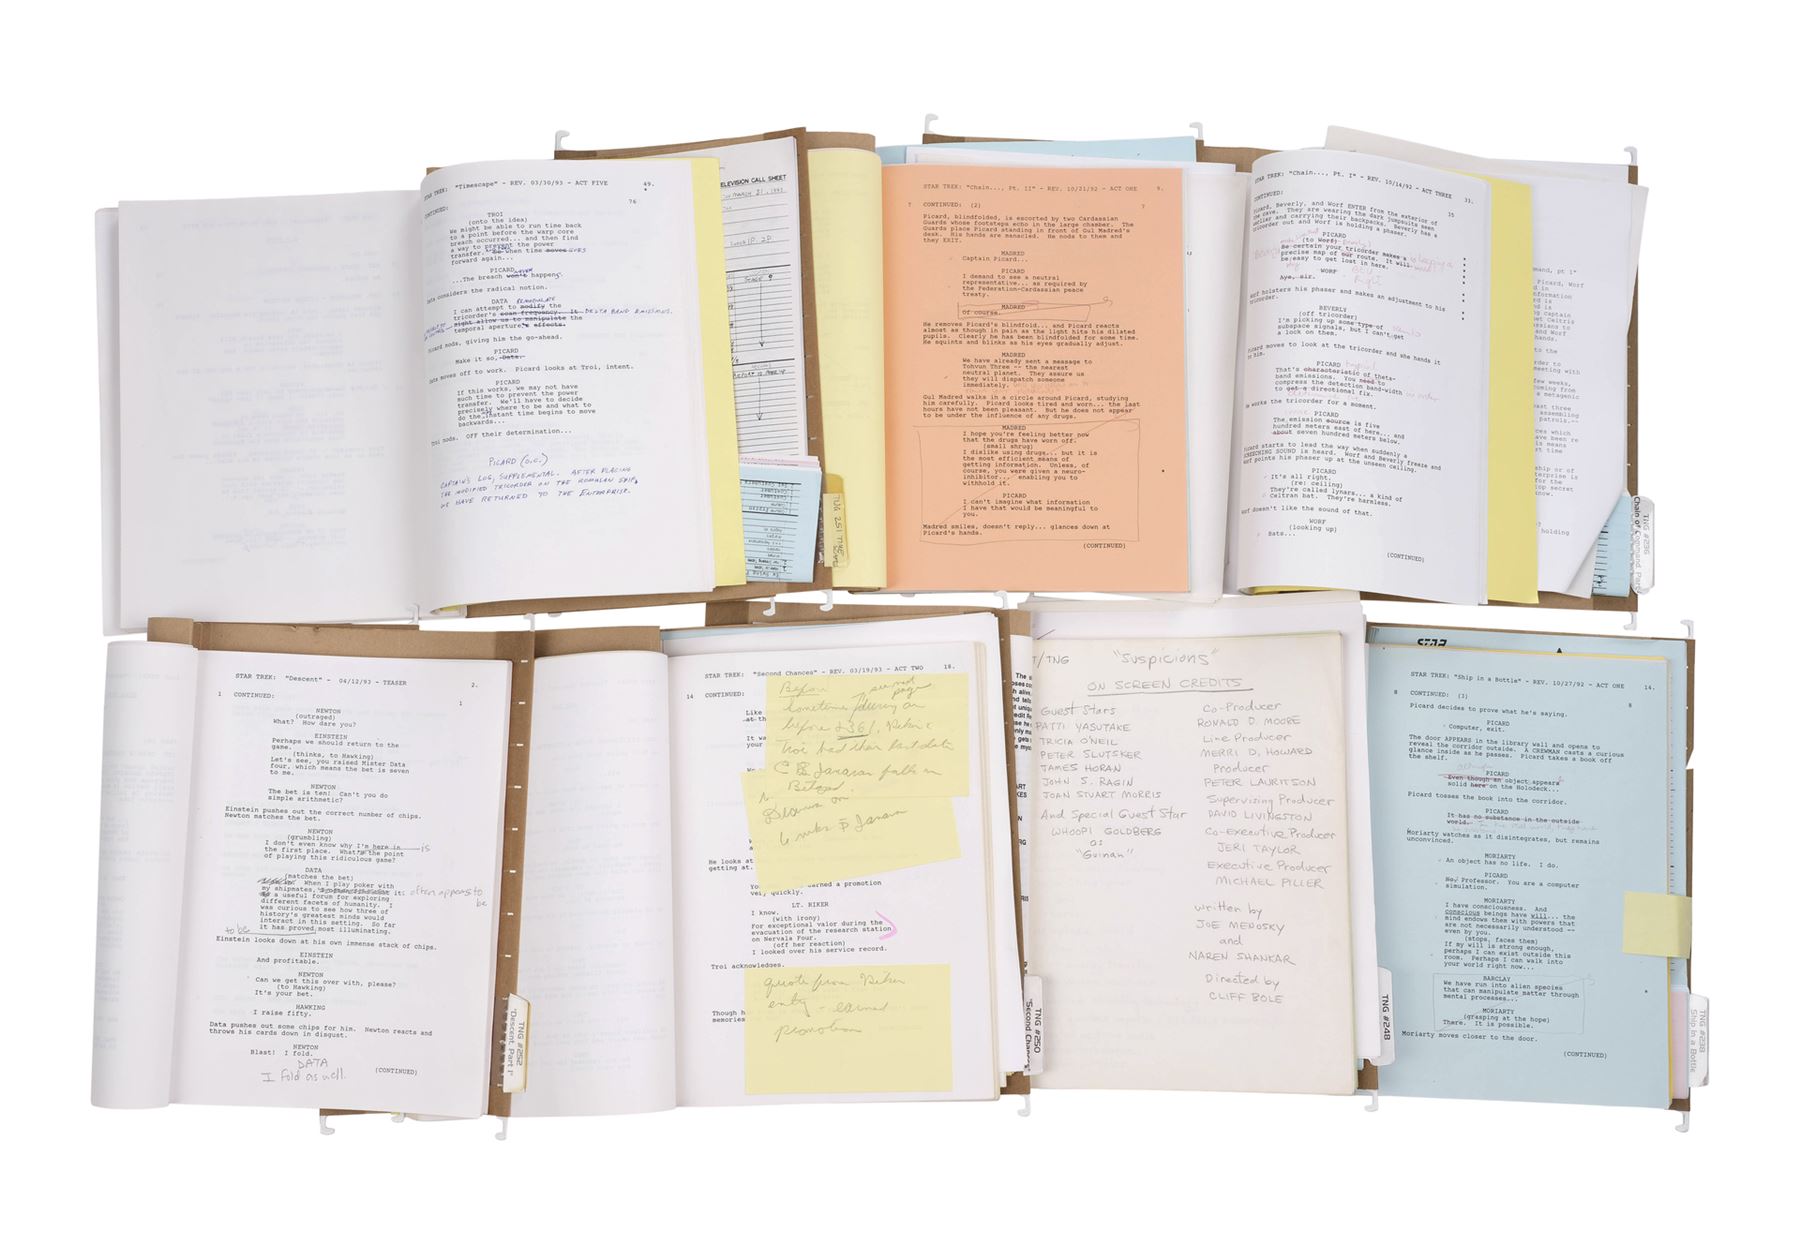 STAR TREK: "Timescape" - REV. 03/30/93 - ACT FIVE 49.
*
76
CONTINUED:
TROI
(onto the idea)
We might be able to run time back
to a point before the warp core
breach occurred... and then find
a way to prevent the power
transfer. So when time moves GOES
forward again...
PICARD
...The breach won't happen.
Data considers the radical notion.
DATA
I can attempt to modify the
tricorder's scan frequency. It DELTA BAND EMISSIONS.
might allow us to manipulate the
temporal aperture's effects.
Picard nods, giving him the go-ahead.
PICARD
Make it so, Data.
Data moves off to work. Picard looks at Troi, intent.
PICARD
If this works, we may not have
much time to prevent the power
transfer. We'll have to decide
precisely where to be and what to
do the instant time begins to move
backwards...
Troi nods. OFF their determination...
PICARD (O.C.)
CAPTAIN'S LOG, SUPPLEMENTAL. AFTER PLACING
THE MODIFIED TRICORDER ON THE ROMULAN SHIP,
WE HAVE RETURNED TO THE ENTERPRISE.
TELEVISION CALL SHEET
TNG 251 TIME
STAR TREK: "Chain..., Pt. II" - REV. 10/21/92 - ACT ONE 9.
7 CONTINUED: (2) 7
Picard, blindfolded, is escorted by two Cardassian
Guards whose footsteps echo in the large chamber. The
Guards place Picard standing in front of Gul Madred's
desk. His hands are manacled. He nods to them and
they EXIT.
MADRED
Captain Picard...
PICARD
I demand to see a neutral
representative... as required by
the Federation-Cardassian peace
treaty.
MADRED
Of course.
He removes Picard's blindfold... and Picard reacts
almost as though in pain as the light hits his dilated
pupils. Clearly he has been blindfolded for some time.
He squints and blinks as his eyes gradually adjust.
MADRED
We have already sent a message to
Tohvun Three -- the nearest
neutral planet. They assure us
they will dispatch someone
immediately.
Gul Madred walks in a circle around Picard, studying
him carefully. Picard looks tired and worn... the last
hours have not been pleasant. But he does not appear
to be under the influence of any drugs.
MADRED
I hope you're feeling better now
that the drugs have worn off.
(small shrug)
I dislike using drugs... but it is
the most efficient means of
getting information. Unless, of
course, you were given a neuro-
inhibitor... enabling you to
withhold it.
PICARD
I can't imagine what information
I have that would be meaningful to
you.
Madred smiles, doesn't reply... glances down at
Picard's hands.
(CONTINUED)
STAR TREK: "Chain..., Pt. I" - REV. 10/14/92 - ACT THREE 33.
CONTINUED: 35
Picard, Beverly, and Worf ENTER from the exterior of
the cave. They are wearing the dark jumpsuits seen
earlier and carrying their backpacks. Beverly has a
tricorder out and Worf is holding a phaser.
PICARD
(to Worf)
Be certain your tricorder makes a
precise map of our route. It will
be easy to get lost in here.
WORF
Aye, sir.
Worf holsters his phaser and makes an adjustment to his
tricorder.
BEVERLY
(off tricorder)
I'm picking up some type of
subspace signals, but I can't get
a lock on them.
Picard moves to look at the tricorder and she hands it
to him.
PICARD
That's characteristic of theta-
band emissions. You need to
compress the detection band-width
to get a directional fix.
He works the tricorder for a moment.
PICARD
The emission source is five
hundred meters east of here... and
about seven hundred meters below.
Picard starts to lead the way when suddenly a
SCREECHING SOUND is heard. Worf and Beverly freeze and
Worf points his phaser up at the unseen ceiling.
PICARD
It's all right.
(re: ceiling)
They're called lynars... a kind of
Celtran bat. They're harmless.
Worf doesn't like the sound of that.
WORF
(looking up)
Bats...
(CONTINUED)
TNG #236
Chain of Command Part
STAR TREK: "Descent" - 04/12/93 - TEASER 2.
1 CONTINUED: 1
NEWTON
(outraged)
What? How dare you?
EINSTEIN
Perhaps we should return to the
game.
(thinks, to Hawking)
Let's see, you raised Mister Data
four, which means the bet is seven
to me.
NEWTON
The bet is ten! Can't you do
simple arithmetic?
Einstein pushes out the correct number of chips.
Newton matches the bet.
NEWTON
(grumbling)
I don't even know why I'm here in is
the first place. What's the point
of playing this ridiculous game?
DATA
(matches the bet)
When I play poker with
my shipmates, it often appears to
be
a useful forum for exploring
different facets of humanity. I
was curious to see how three of
history's greatest minds would
interact in this setting. So far
to be it has proved most illuminating.
Einstein looks down at his own immense stack of chips.
EINSTEIN
And profitable.
NEWTON
Can we get this over with, please?
(to Hawking)
It's your bet.
HAWKING
I raise fifty.
Data pushes out some chips for him. Newton reacts and
throws his cards down in disgust.
NEWTON
Blast! I fold.
DATA
I fold as well.
(CONTINUED)
TNG #252
"Descent, Part I"
STAR TREK: "Second Chances" - REV. 03/19/93 - ACT TWO 18.
14 CONTINUED:
Before
sometime during or
before Riker &
Troi had their last date
Janaran falls on
Betazed
6 wks Janaran
He looks at
getting at.
earned a promotion
very quickly.
LT. RIKER
I know.
(with irony)
For exceptional valor during the
evacuation of the research station
on Nervala Four.
(off her reaction)
I looked over his service record.
Troi acknowledges.
quote from Riker
entry - earned
promotion
Though h
memories
TNG #250
"Second Chances"
T/TNG "Suspicions"
ON SCREEN CREDITS
Guest Stars
PATTI YASUTAKE
TRICIA O'NEIL
PETER SLUTSKER
JAMES HORAN
JOHN S. RAGIN
JOAN STUART MORRIS
And Special Guest Star
WHOOPI GOLDBERG
as
"Guinan"
Co-Producer
RONALD D. MOORE
Line Producer
MERRI D. HOWARD
Producer
PETER LAURITSON
Supervising Producer
DAVID LIVINGSTON
Co-Executive Producer
JERI TAYLOR
Executive Producer
MICHAEL PILLER
written by
JOE MENOSKY
and
NAREN SHANKAR
Directed by
CLIFF BOLE
TNG #248
STAR TREK: "Ship in a Bottle" - REV. 10/27/92 - ACT ONE 14.
8 CONTINUED: (3) 8
Picard decides to prove what he's saying.
PICARD
Computer, exit.
The door APPEARS in the library wall and opens to
reveal the corridor outside. A CREWMAN casts a curious
glance inside as he passes. Picard takes a book off
the shelf.
PICARD
Even though an object appears
solid here on the Holodeck...
Picard tosses the book into the corridor.
PICARD
It has no substance in the outside
world.
Moriarty watches as it disintegrates, but remains
unconvinced.
MORIARTY
An object has no life. I do.
PICARD
No, Professor. You are a computer
simulation.
MORIARTY
I have consciousness. And
conscious beings have will... the
mind endows them with powers that
are not necessarily understood --
even by you.
(stops, faces them)
If my will is strong enough,
perhaps I can exist outside this
room. Perhaps I can walk into
your world right now...
BARCLAY
We have run into alien species
that can manipulate matter through
mental processes...
MORIARTY
(grasping at the hope)
There. It is possible.
Moriarty moves closer to the door.
(CONTINUED)
TNG #238
Ship in a Bottle